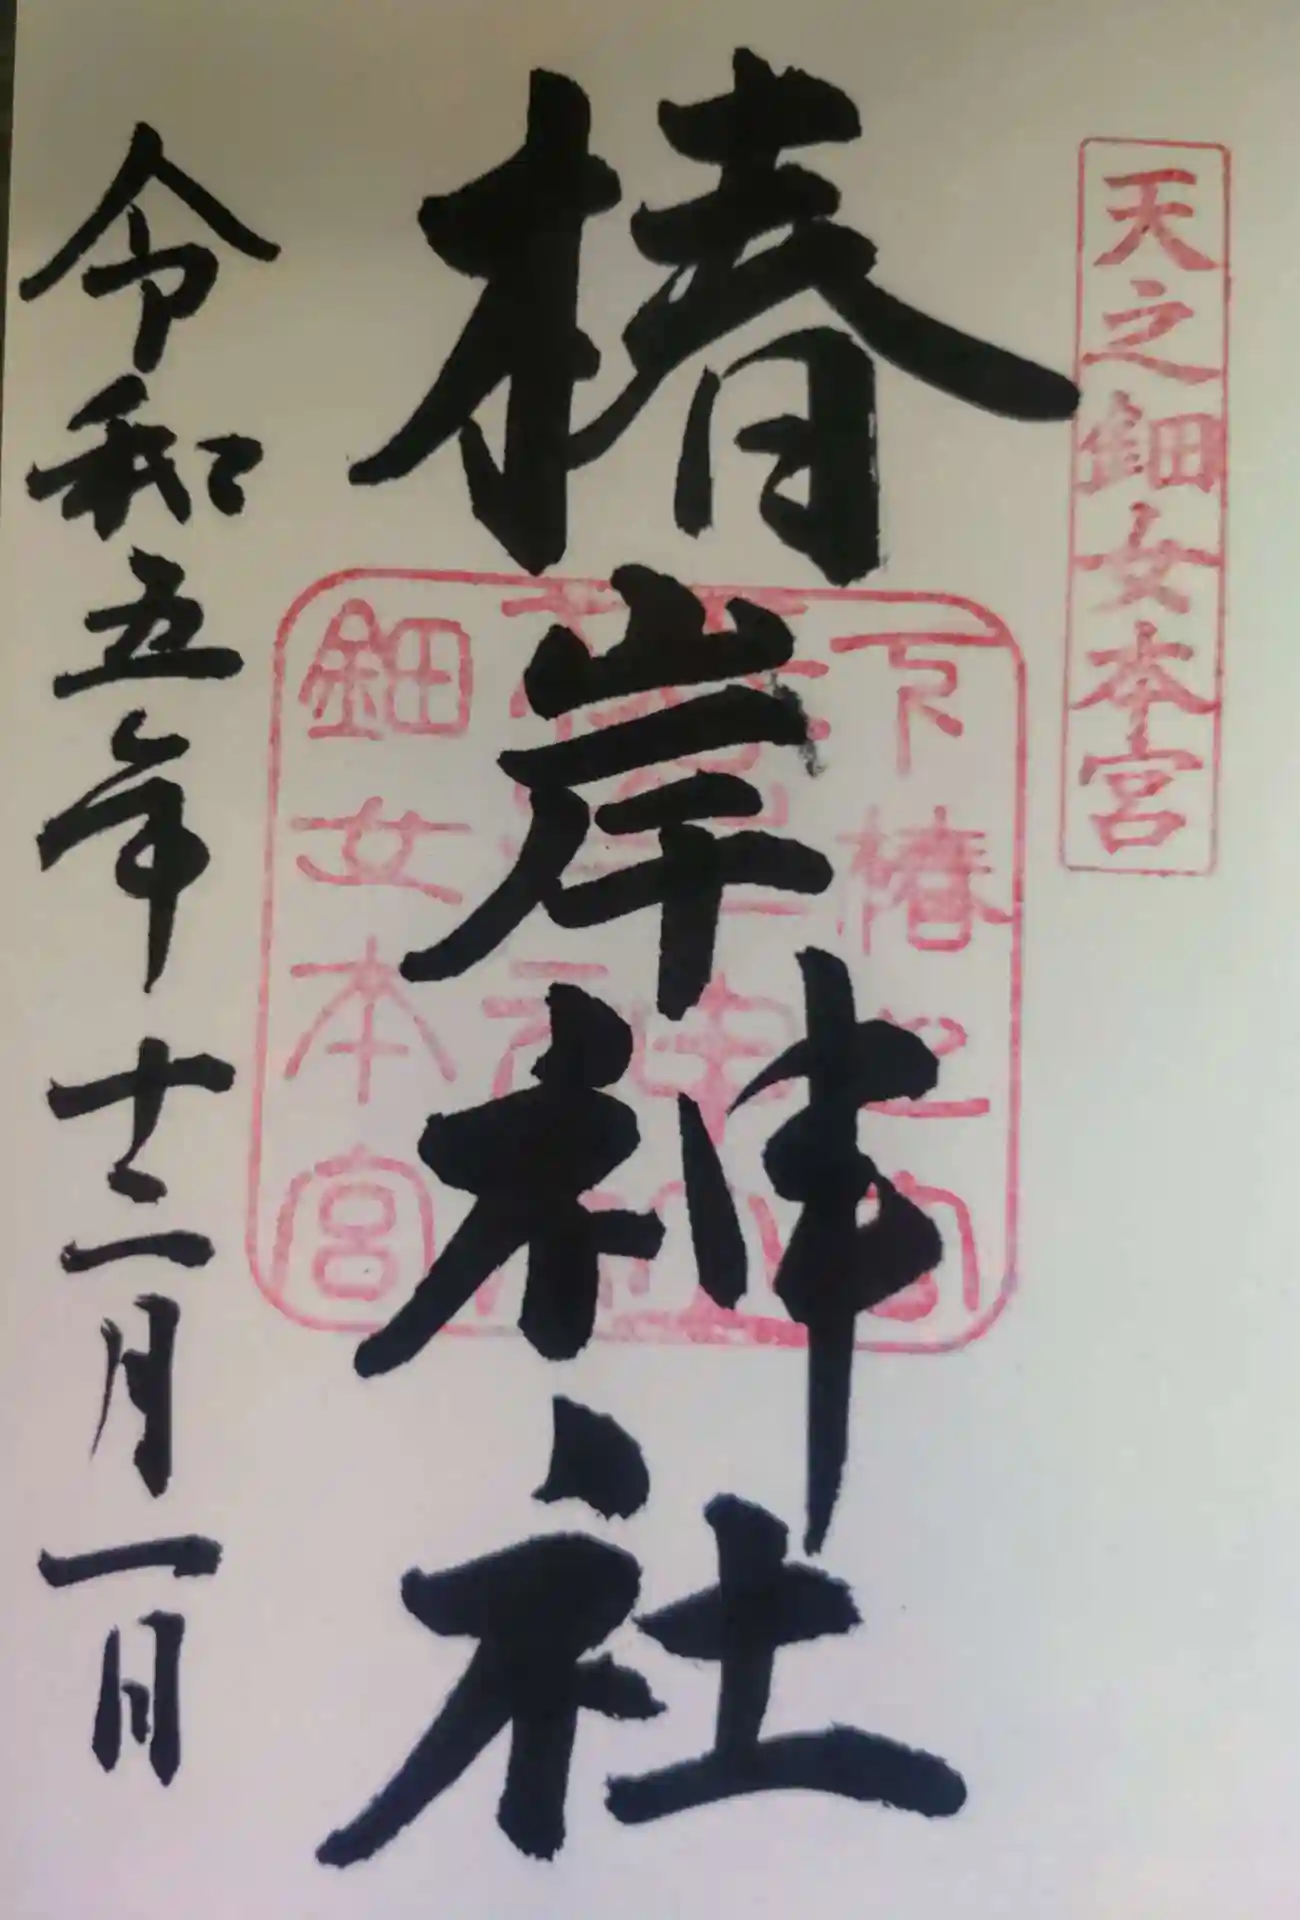 天之鈿女本宮
椿岸神社
下椿之
鈿女本宮
令和五年十二月一日